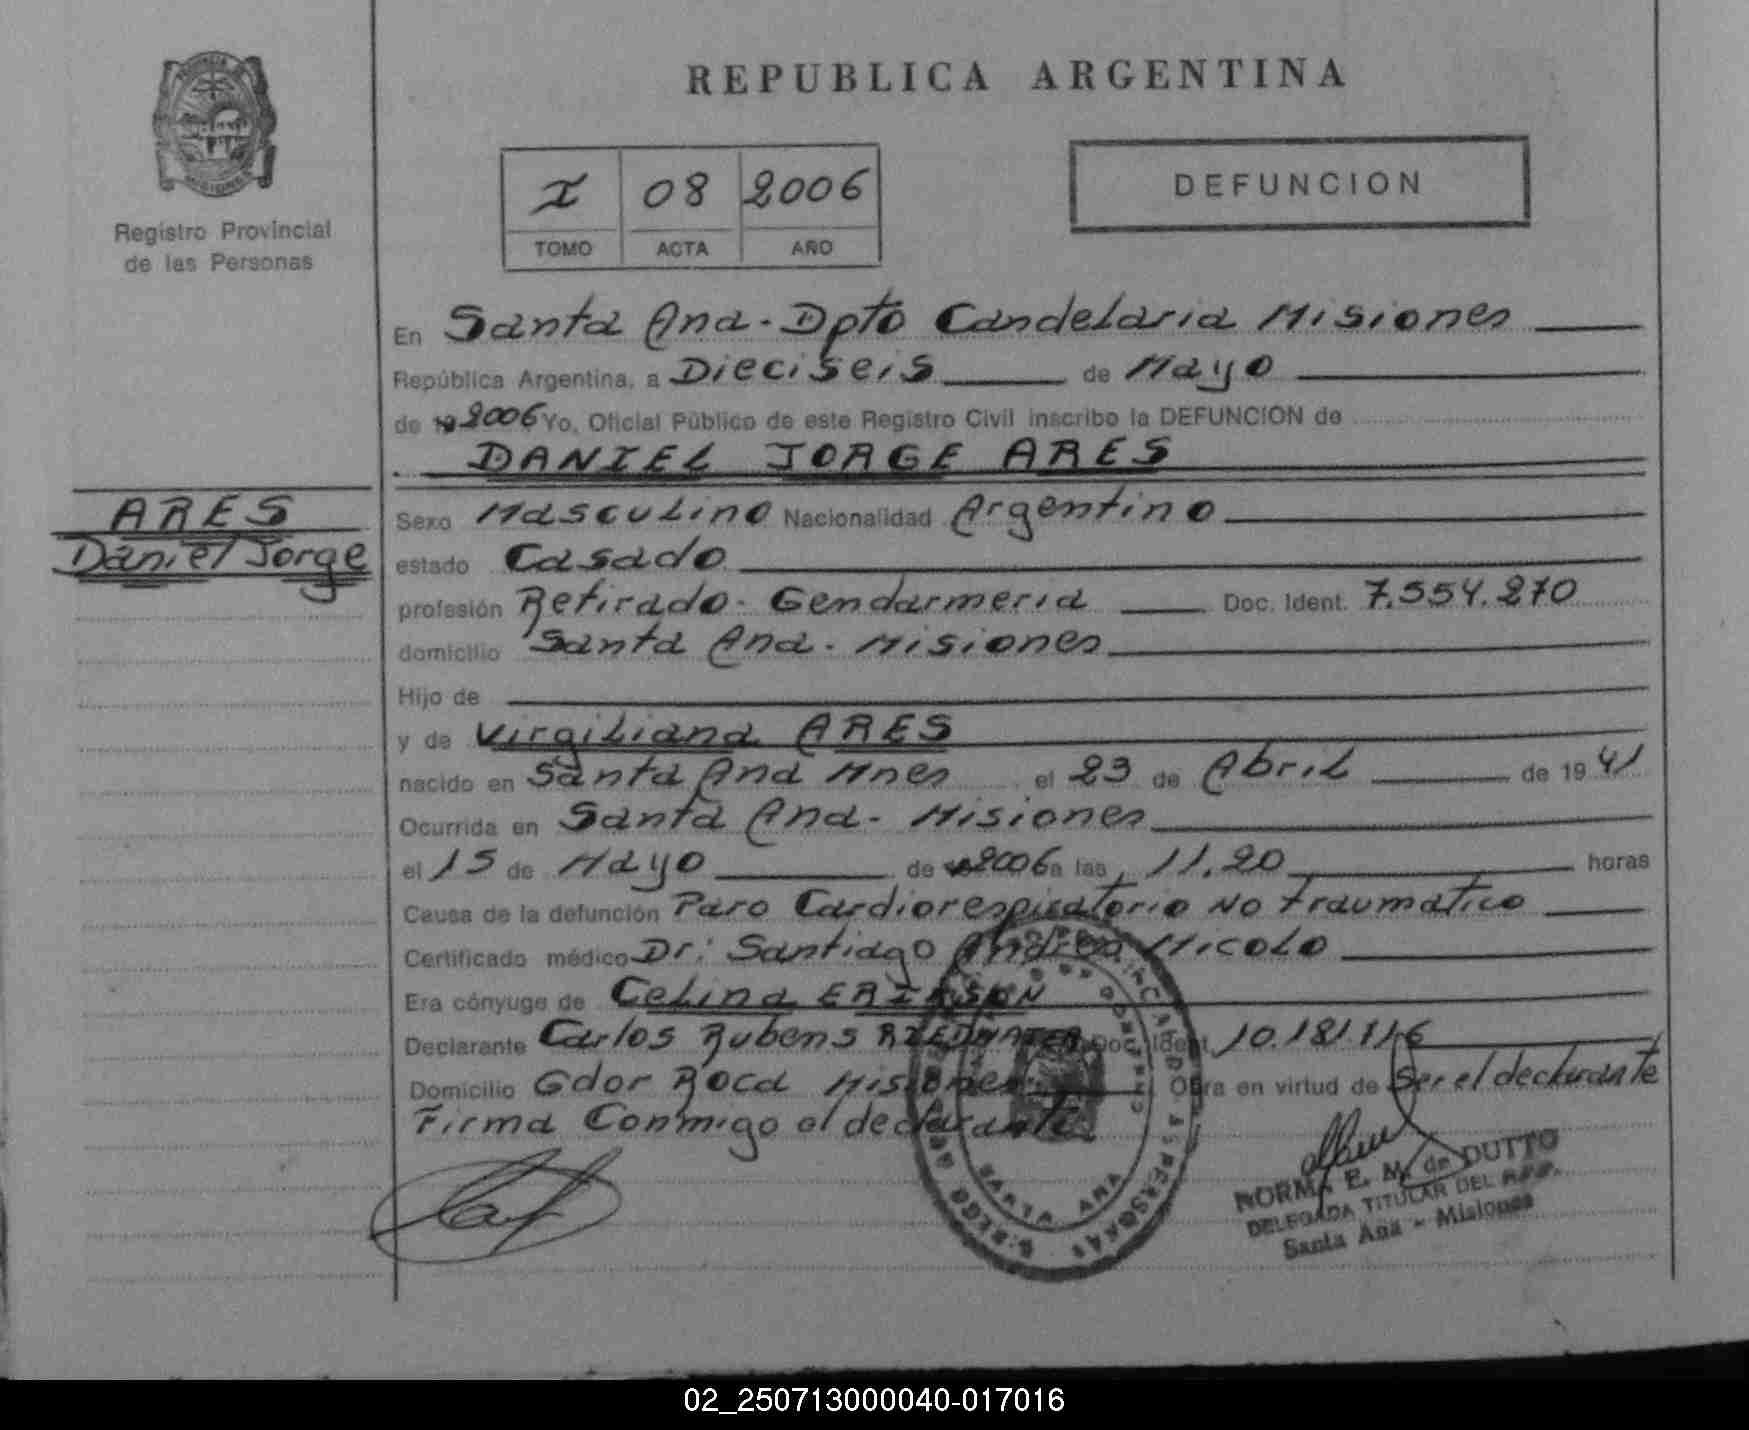 REPUBLICA ARGENTINA
PROVINCIA DE
MISIONES
Registro Provincial
de las Personas
I 08 2006
TOMO ACTA AÑO
DEFUNCION
En Santa Ana - Dpto Candelaria Misiones
República Argentina, a Dieciseis de Mayo
de 19 2006 Yo, Oficial Público de este Registro Civil inscribo la DEFUNCION de
DANIEL JORGE ARES
ARES
Daniel Jorge
Sexo Masculino Nacionalidad Argentino
estado Casado
profesión Retirado - Gendarmeria Doc. Ident. 7.554.270
domicilio Santa Ana - Misiones
Hijo de
y de Virgiliana ARES
nacido en Santa Ana Mnes el 23 de Abril de 19 41
Ocurrida en Santa Ana - Misiones
el 15 de Mayo de 19 2006 a las 11.20 horas
Causa de la defunción Paro Cardiorespiratorio No traumatico
Certificado médico Dr: Santiago Andres Micolo
Era cónyuge de Celina
Declarante Carlos Rubens Doc. Ident. 10.181.116
Domicilio Gdor Roca Misiones Obra en virtud de Ser el declarante
Firma Conmigo el declarante
SANTA ANA
NORMA E. M. de DUTTO
DELEGADA TITULAR DEL R.P.P.
Santa Ana - Misiones
02_250713000040-017016